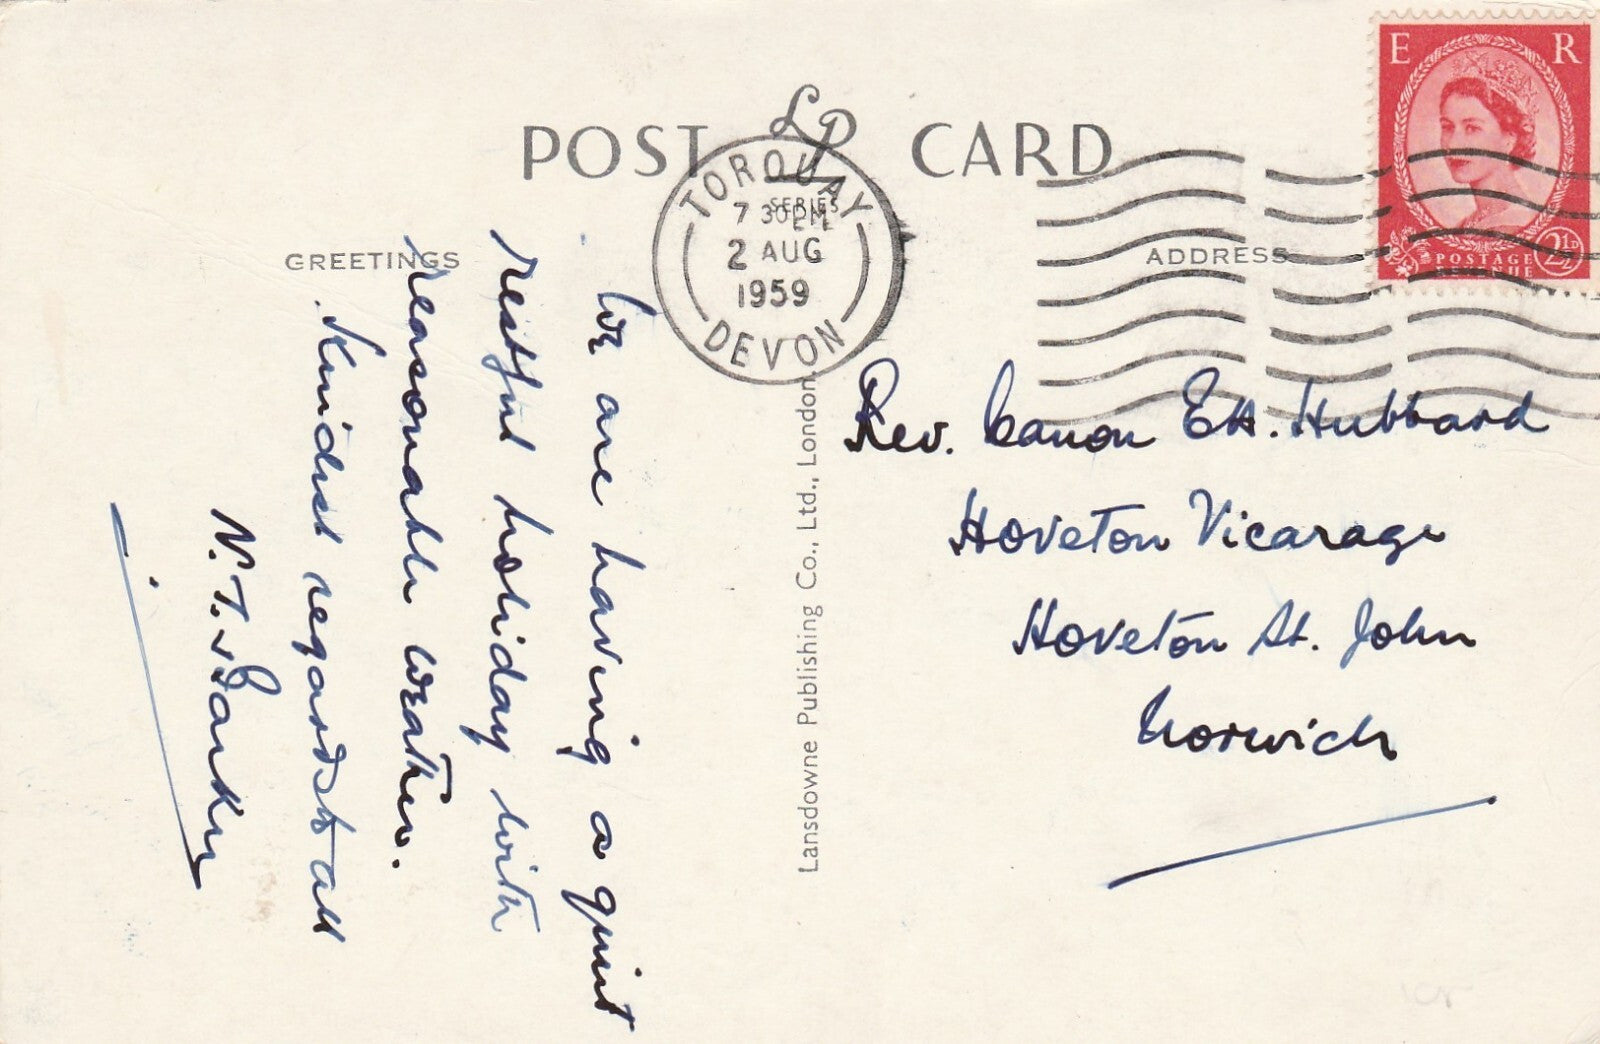 POST CARD
LP
SERIES
TORQUAY
7 30 PM
2 AUG
1959
DEVON
E R
POSTAGE
REVENUE
2½D
GREETINGS
ADDRESS
We are having a quiet
restful holiday with
reasonable weather.
Kindest regards to all
N. T.
Lansdowne Publishing Co., Ltd., London.
Rev. Canon E.H. Hubbard
Hoveton Vicarage
Hoveton St. John
Norwich